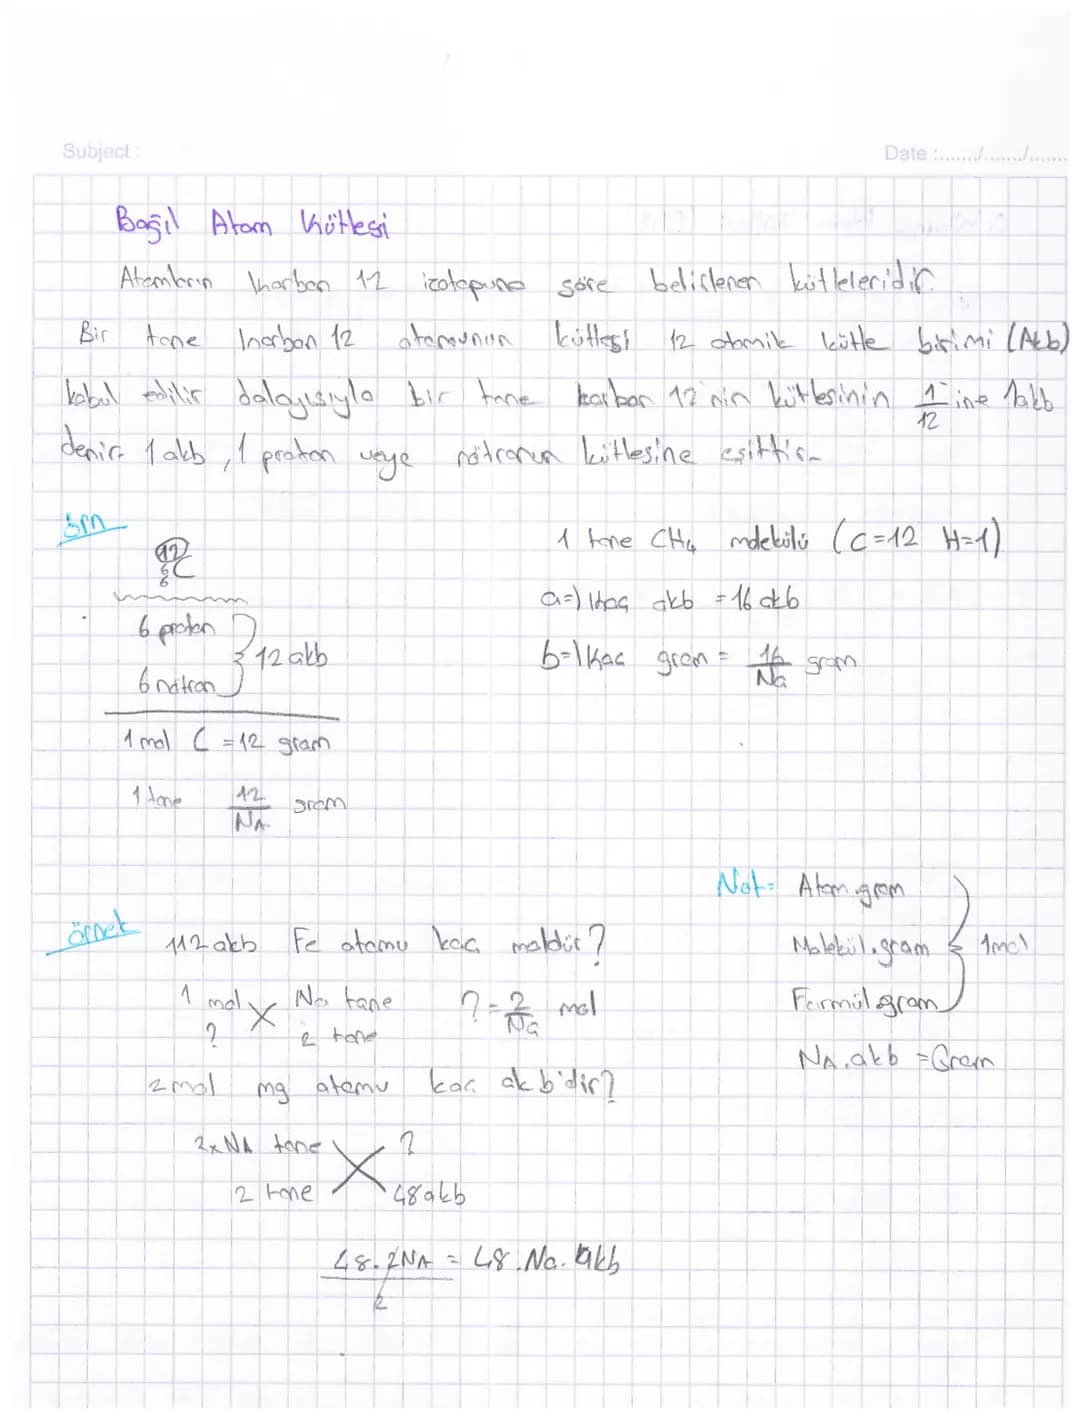 Subject :
Date :......./......./.......
Bağıl Atom Kütlesi
Atomların Karbon 12 izotopuna göre belirlenen kütleleridir.
Bir tane Karbon 12 atomunun kütlesi 12 atomik kütle birimi (Akb)
kabul edilir dolayısıyla bir tane karbon 12'nin kütlesinin 1/12 ine 1akb
denir 1 akb, 1 proton veya nötronun kütlesine eşittir.
örn
12 6 C
6
6 proton
6 nötron } 12 akb
1 mol C = 12 gram
1 tane 12/NA gram
1 tane CH4 molekülü (C=12 H=1)
a=) Kaç akb = 16 akb
b=) Kaç gram = 16/Na gram
Not= Atom.gram
Molekül.gram } 1mol
Formül.gram
NA.akb = Gram
örnek
112 akb Fe atomu kaç moldür?
1 mol Na tane
? 2 tane
? = 2/Na mol
2 mol mg atomu kaç akb'dir?
2xNA tane ?
2 tane 48akb
48.2NA/2 = 48.Na.akb